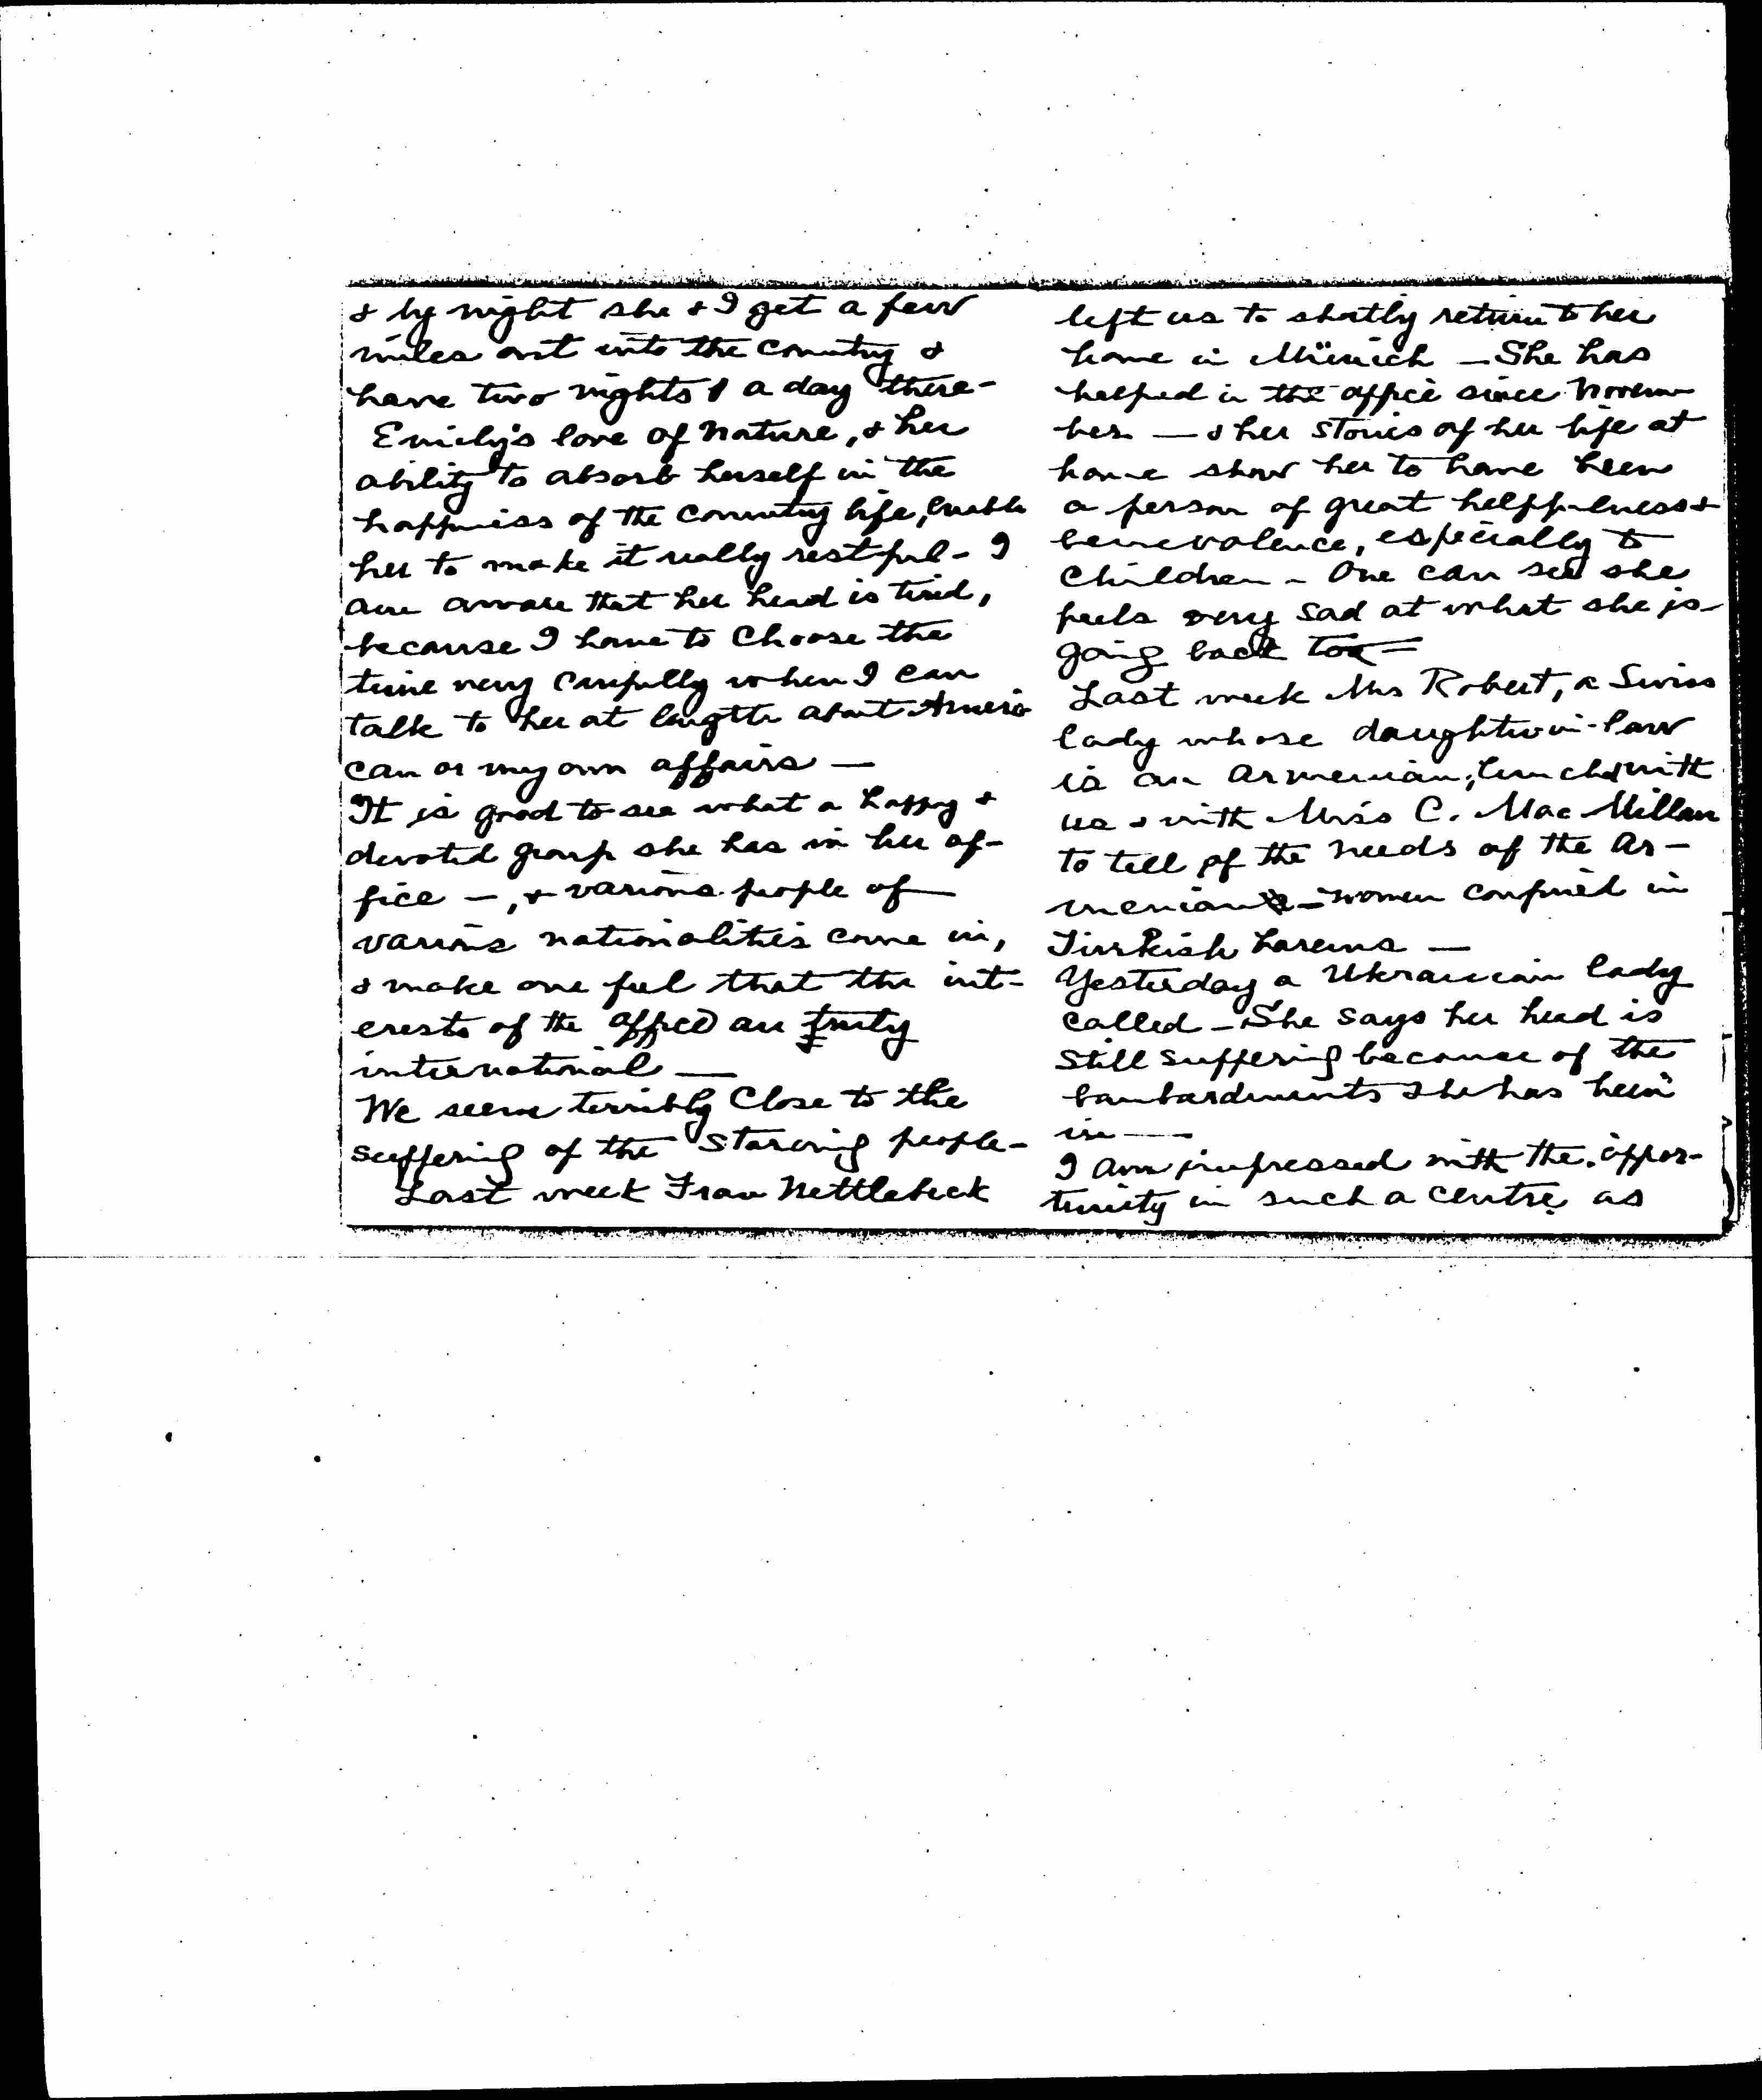 & by night she & I get a few
miles out into the country &
have two nights & a day there-
Emily's love of nature, & her
ability to absorb herself in the
happiness of the country life, enable
her to make it really restful - I
am aware that her head is tired,
because I have to choose the
time very carefully when I can
talk to her at length about Ameri-
can or my own affairs —
It is good to see what a happy &
devoted group she has in her of-
fice —, & various people of
various nationalities come in,
& make one feel that the int-
erests of the office are truly
international —
We seem terribly close to the
suffering of the starving people-
Last week Frau Nettlebeck
left us to shortly return to her
home in Münich — She has
helped in the office since Novem-
ber — & her stories of her life at
home show her to have been
a person of great helpfulness &
benevolence, especially to
children - One can see she
feels very sad at what she is
going back to —
Last week Mrs Robert, a Swiss
lady whose daughter-in-law
is an Armenian, lunched with
us & with Miss C. MacMillan
to tell of the needs of the Ar-
menian - women confined in
Turkish harems —
Yesterday a Ukrainian lady
called - She says her head is
still suffering because of the
bombardments she has been
in —
I am impressed with the oppor-
tunity in such a centre as